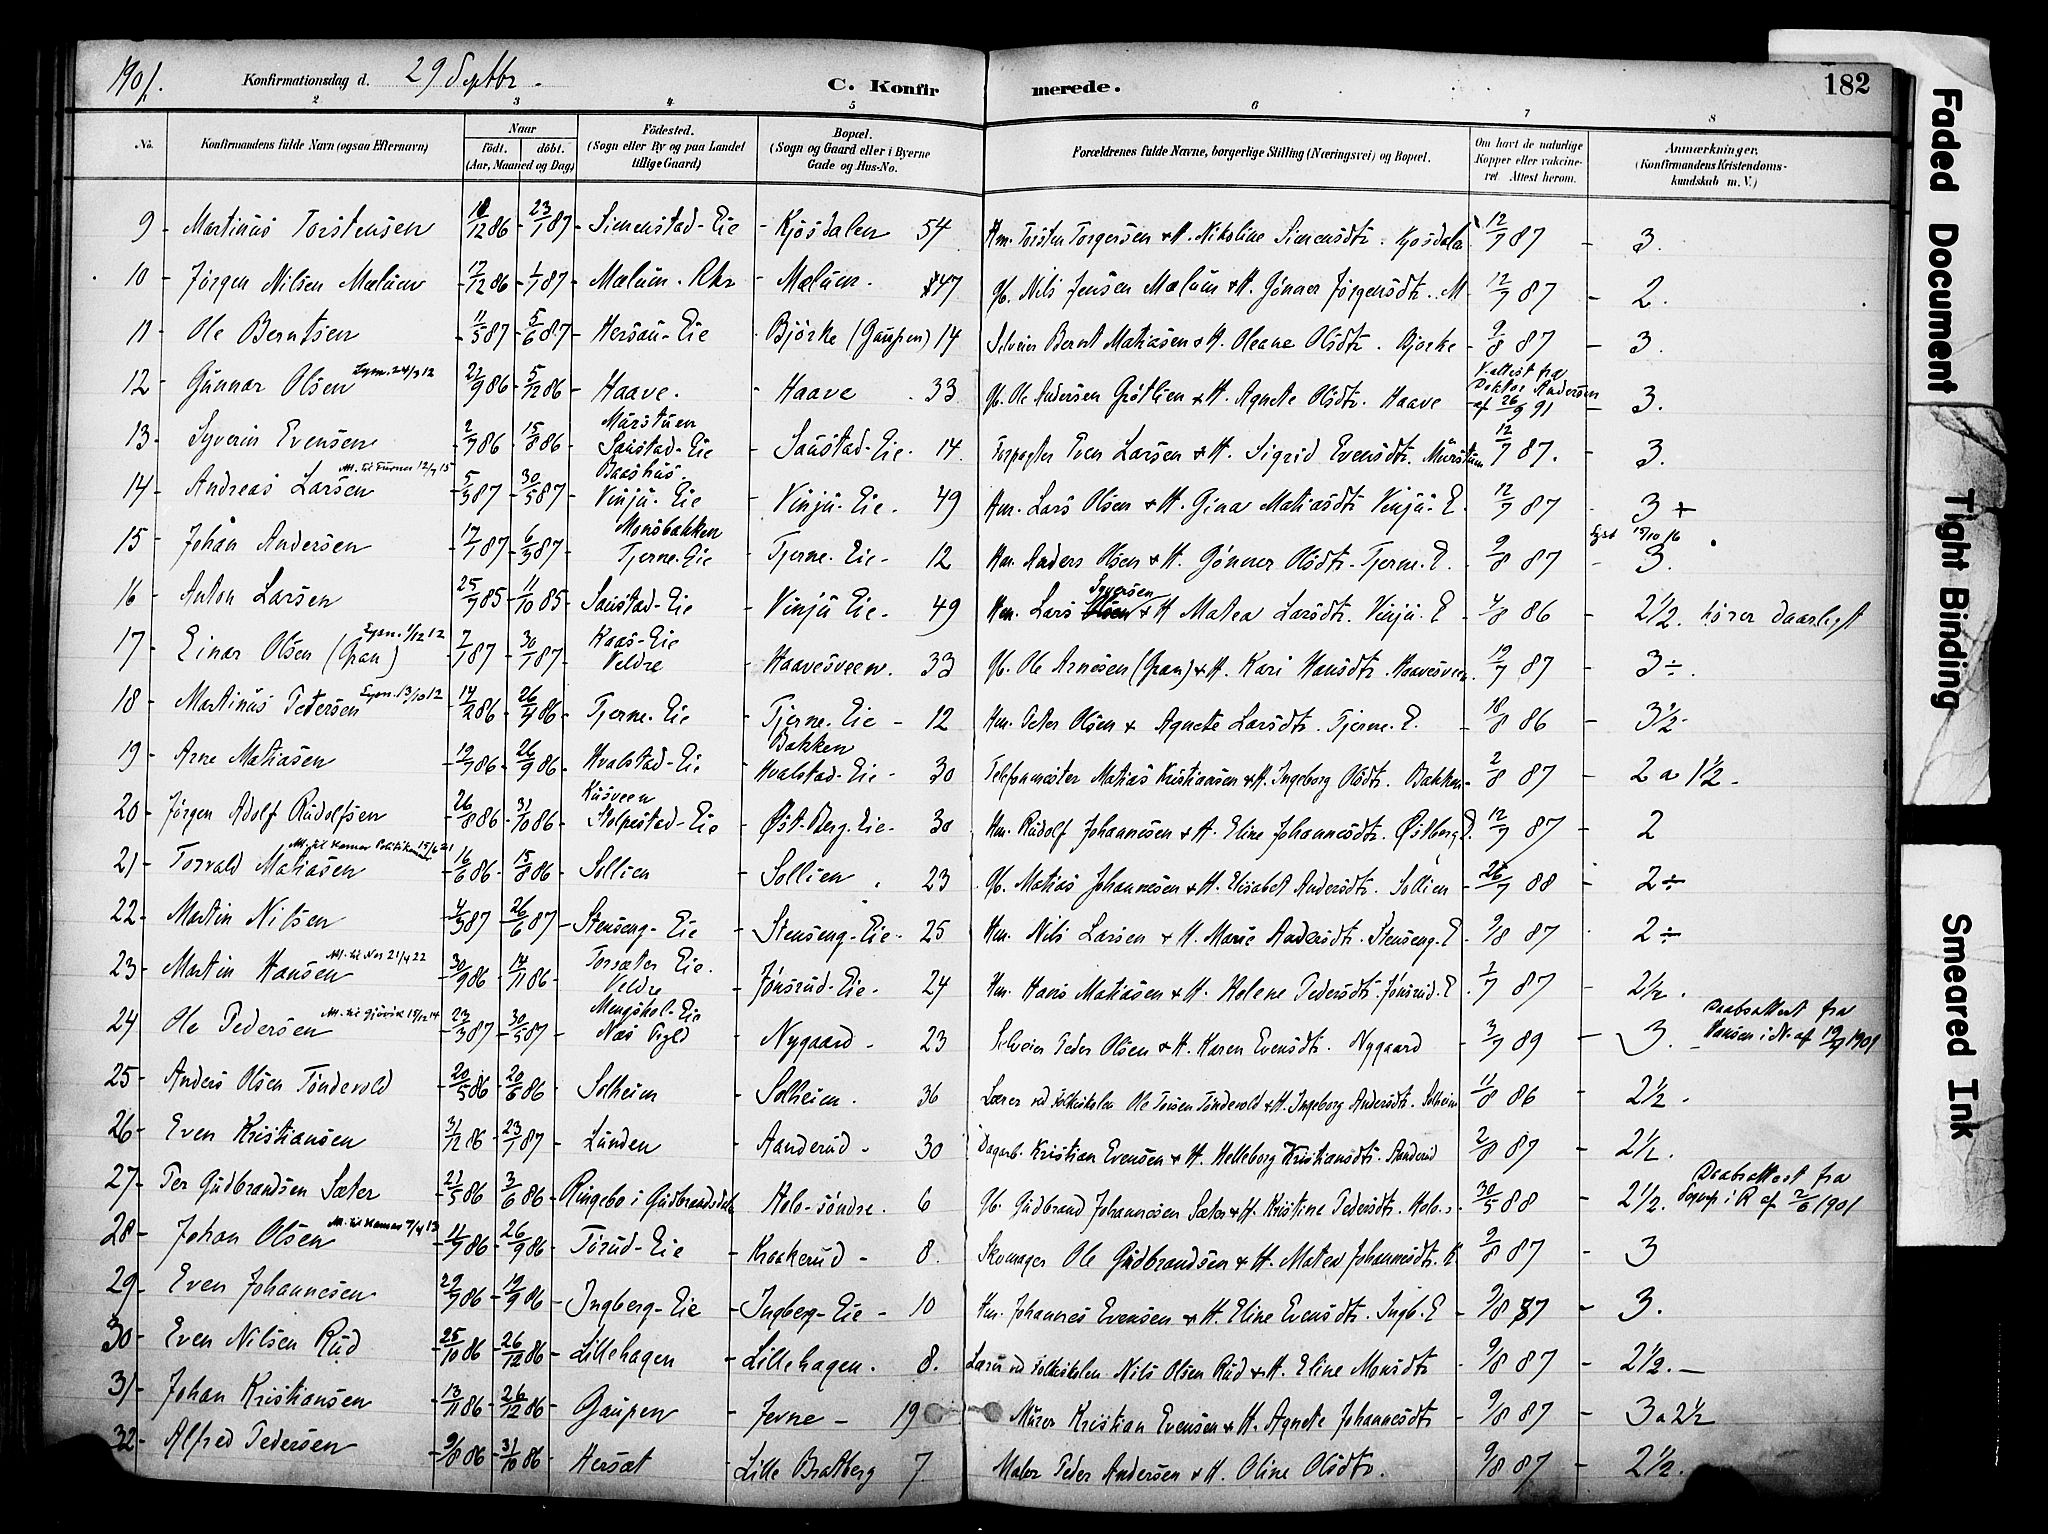 1901. Konfirmationsdag d. 29 Septbr. C. Konfirmerede. 182
2 3 4 5 6 7 8
No. Konfirmandens fulde Navn (ogsaa Efternavn) Naar født. døbt. (Aar, Maaned og Dag) Fødested. (Sogn eller By og paa Landet tillige Gaard) Bopæl. (Sogn og Gaard eller i Byerne Gade og Hus-No. Forældrenes fulde Navne, borgerlige Stilling (Næringsvei) og Bopæl. Om havt de naturlige Kopper eller vakcineret Attest herom. Anmærkninger, (Konfirmandens Kristendomskundskab m. V.)
9 - Martinus Torstensen 12 86 - 23/1 87 Simenstad-Eie - Kjosdalen 54 Hm. Torsten Torgersen & H. Nikoline Simensdtr. Kjosdalen 12/7 87 - 3.
10 - Jørgen Nilsen Mælum 17/12 86 - 1/1 87 Mælum. Rkr - Mælum. 47 Gb. Nils Jensen Mælum & H. Gønner Jørgensdtr. M 12/7 87 - 2.
11 - Ole Berntsen 11/5 87 - 5/6 87 Hersau-Eie - Bjørke (Gaupen) 14 Selveier Bernt Matiasen & H. Oleane Olsdtr. Bjørke - 9/8 87 - 3.
12 - Gunnar Olsen 24/3 12 22/9 86 - 5/12 86 Haave. - Haave 33 Gb. Ole Andersen Grøtlien & H. Agnete Olsdtr. Haave V.attest fra Doktor Andersen af 26/9 91 - 3.
13 - Syverin Evensen 2/7 86 - 15/8 86 Murstuen Saustad-Eie - Saustad-Eie. 14. Forpagter Even Larsen & H. Sigrid Evensdtr. Murstuen 12/7 87. - 3.
14 - Andreas Larsen Att. til Furnes 12/7 15 5/3 87 - 30/5 87 Baashus. Vinju-Eie - Vinju-Eie. 49 Hm. Lars Olsen & H. Gina Matiasdtr. Vinju-E. 12/7 87 3 +
15 - Johan Andersen 17/1 87 - 6/3 87 Monsbakken Tjerne-Eie - Tjerne-Eie - 12 Hm. Anders Olsen & H. Gønner Olsdtr. Tjerne-E. 9/8 87 - 3. Lyst 15/10 16
16 - Anton Larsen 25/7 85 - 11/10 85 Saustad-Eie - Vinju Eie - 49 Hm. Lars Syversen & H Matea Larsdtr. Vinju-E 4/8 86 - 2½. hører daarligt
17 - Einar Olsen (Gran) Lysn. 1/12 12 7/1 87 - 30/1 87 Kaas-Eie Veldre - Haavesveen. 33 Gb. Ole Arnesen (Gran) & H. Kari Hansdtr. Haavesveen. 12/7 87 - 3÷.
18 - Martinus Pedersen Lysn. 13/10 12 14/2 86 - 26/4 86 Tjerne-Eie - Tjerne-Eie - 12 Hm. Peter Olsen & Agnete Larsdtr. Tjerne-E. 18/8 86 - 3½-
19 - Arne Matiasen 19/7 86 - 26/9 86 Hvalstad-Eie - Bakken Hvalstad-Eie - 30 Telefonmester Matias Kristiansen & H. Ingeborg Olsdtr. Bakken - 2/8 87 - 2 a 1½ -
20 - Jørgen Adolf Rudolfsen 26/8 86 - 31/10 86 Kusveen Stolpestad-Eie - Øst. Berg. Eie - 30 Hm. Rudolf Johannesen & H. Eline Johannesdtr. Østberg E. 12/7 87 - 2
21 - Torvald Matiasen 16/6 86 - 15/8 86 Sollien - Sollien 23 Gb. Matias Johannesen & H. Elisabet Andersdtr. Sollien - 26/7 88 - 2÷
22 - Martin Nilsen 4/3 87 - 26/6 87 Stenseng-Eie - Stenseng-Eie - 25 Hm. Nils Larsen & H. Marie Andersdtr. Stenseng-E 9/8 87 2÷
23 - Martin Hansen Att. til Nes 21/4 22 30/9 86 - 14/11 86 Torsæter Eie. Veldre - Jønsrud-Eie - 24 Hm. Hans Matiasen & H. Helene Pedersdtr. Jønsrud-E 7/7 87 - 2½.
24 - Ole Pedersen Att. til Gjøvik 15/12 14 23/3 87 - 30/5 87 Mengshol-Eie Næs Prgld - Nygaard - 23 Selveier Peder Olsen & H. Karen Evensdtr. Nygaard - 3/7 89 - 3. Daabsattest fra Hansen i N. af 19/7 1901
25 - Anders Olsen Tøndevold 20/5 86 - 20/6 86 - Solheim - Solheim. 36 Lærer ved folkeskolen Ole Tosten Tøndevold & H. Ingeborg Andersdtr. Solheim 11/8 86 - 2½.
26 - Even Kristiansen 31/12 86 - 23/1 87 - Lunden - Aanderud - 30 Dagarb. Kristian Evensen & H. Helleborg Kristiansdtr. Aanderud 2/8 87 - 2½.
27 - Per Gudbrandsen Sæter 21/5 86 - 3/6 86 - Ringebo i Gudbrandsdalen - Holo-søndre. 6 Gb. Gudbrand Johannesen Sæter & H. Kristine Pedersdtr. Holo.s 30/5 88 - 2½. Daabsattest fra i R af 2/6 1901
28 - Johan Olsen Att. til Hamar 7/4 13 11/7 86 - 26/9 86 - Torud-Eie - Kraakerud - 8. Skomager Ole Gudbrandsen & H. Matea Johannesdtr. K 9/8 87 - 3
29 - Even Johannesen 29/7 86 - 19/9 86 - Ingberg-Eie - Ingberg-Eie - 10 Hm. Johannes Evensen & H. Eline Evensdtr. Ingb.-E - 9/8 87 - 3.
30 - Even Nilsen Rud 25/10 86 - 26/12 86 - Lillehagen - Lillehagen. 8. Lærer ved folkeskolen Nils Olsen Rud & H. Eline Monsdtr - 9/8 87 - 2½. -
31 - Johan Kristiansen 13/11 86 - 26/12 86 - Gaupen - Jevne - 19 Murer Kristian Evensen & H. Agnete Johannesdtr - 9/8 87 - 3 a 2½
32 - Alfred Pedersen 9/8 86 - 31/10 86 - Hersæt - Lille Bratberg 7 Maler Peder Andersen & H. Oline Olsdtr. - 9/8 87 - 2½.
Faded Document
Tight Binding
Smeared Ink